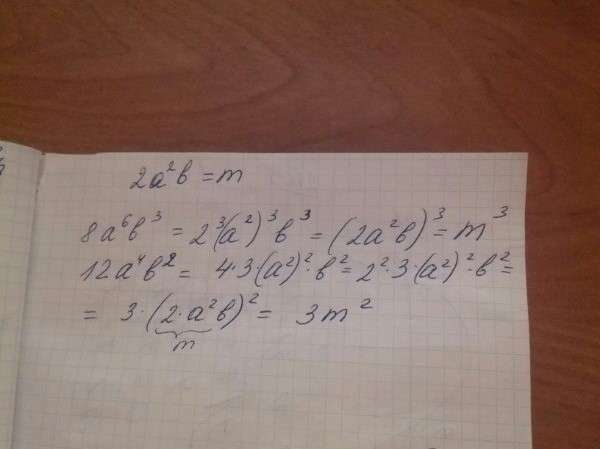 2a²b = m
8a⁶b³ = 2³(a²)³b³ = (2a²b)³ = m³
12a⁴b² = 4·3(a²)²·b² = 2²·3·(a²)²·b² =
= 3·(2·a²b)² = 3m²
m